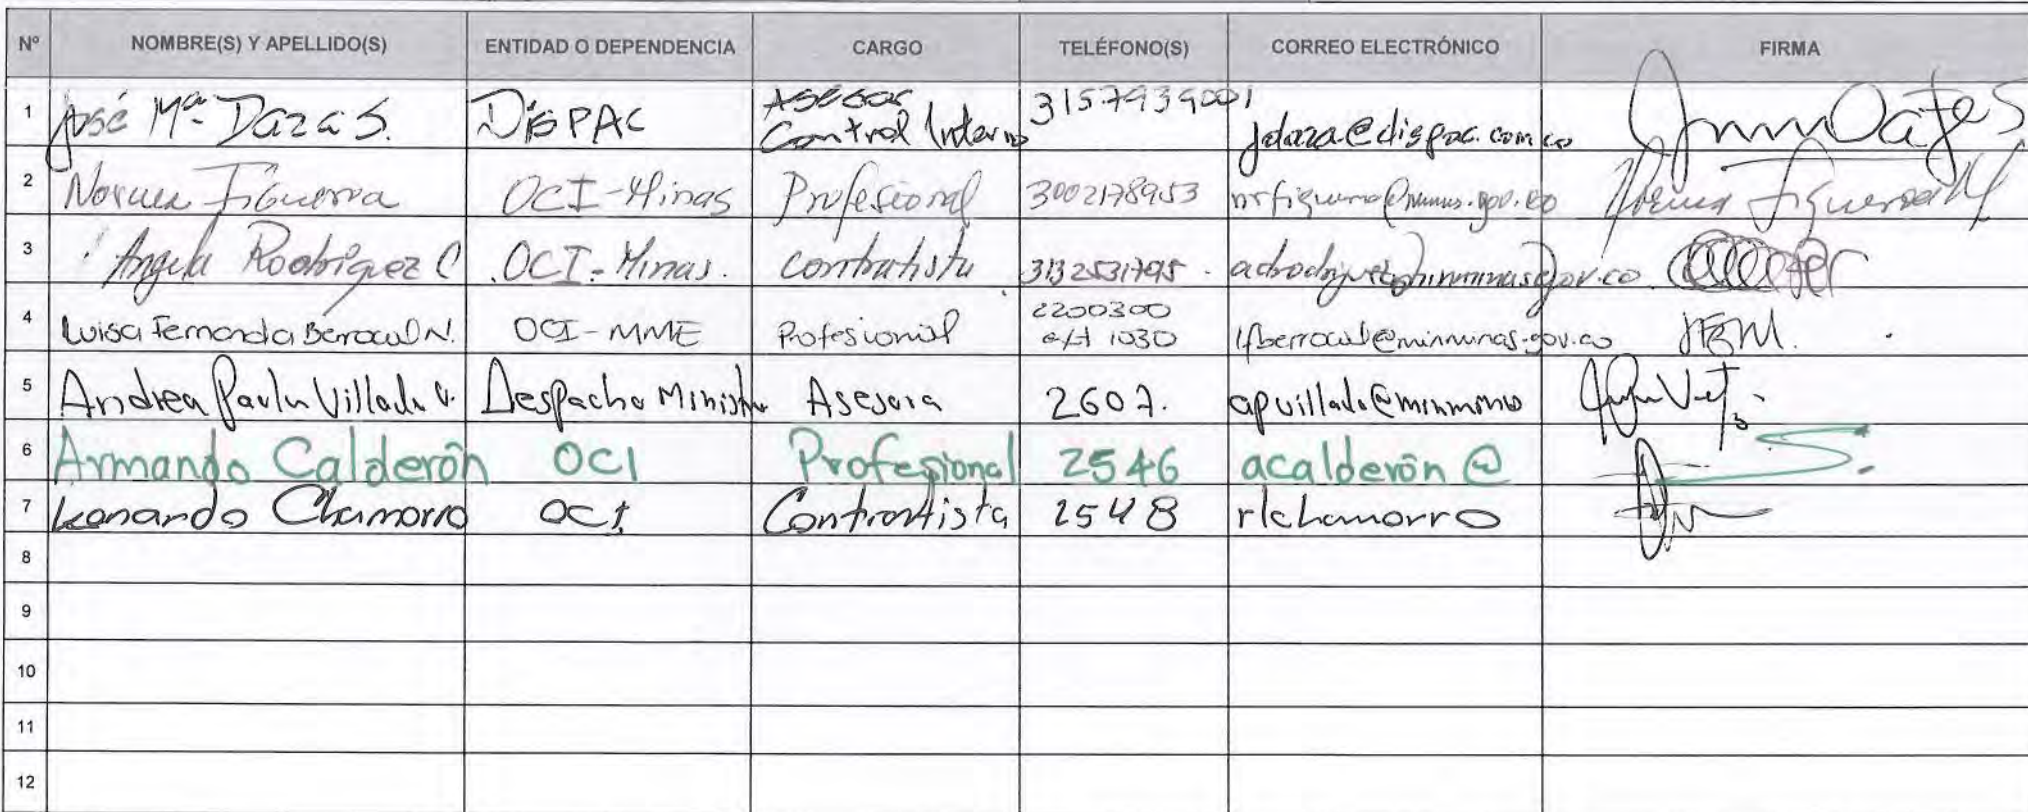 Nº NOMBRE(S) Y APELLIDO(S) ENTIDAD O DEPENDENCIA CARGO TELÉFONO(S) CORREO ELECTRÓNICO FIRMA
1 José Mª Daza S. DISPAC Asesor Control Interno jdaza@dispac.com.co
2 Norma Figueroa OCI-Minas Profesional 3002178953
3 Angela Rodriguez C OCI-Minas. contratista
4 Luisa Fernanda Berrocal N. OCI-MME Profesional 2200300 ext 1030 lfberrocal@minminas.gov.co
5 Andrea Paula Villada V. Despacho Ministro Asesora 2607.
6 Armando Calderón OCI Profesional 2546 acalderón@
7 Leonardo Chamorro OCI Contratista 2548 rlchamorro
8
9
10
11
12